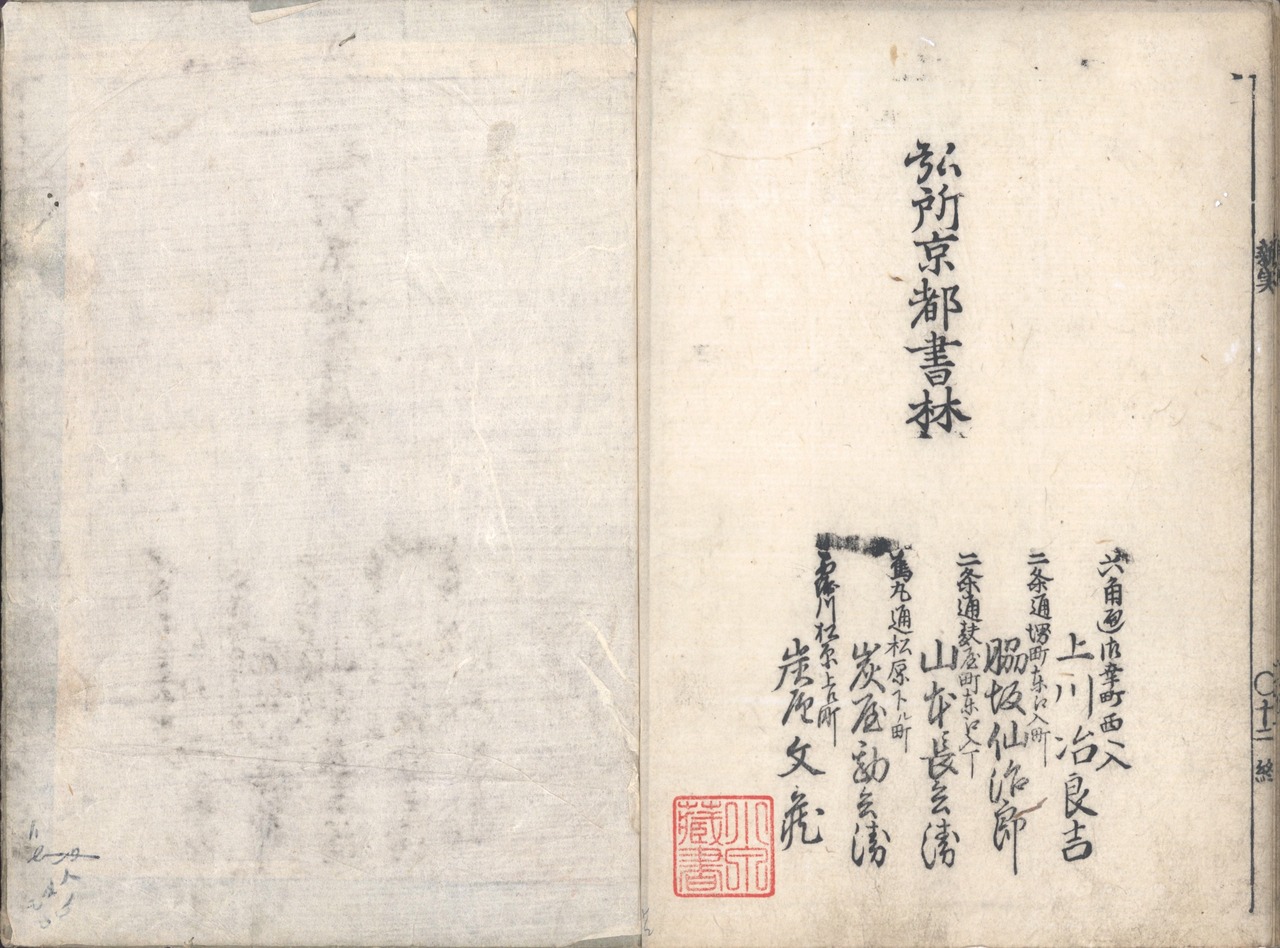 弘所京都書林
六角通御幸町西入
上川治良吉
二条通堺町东江入町
脇坂仙治郎
二条通麸屋町东江入丁
山本長兵衛
烏丸通松原下ル町
炭屋勘兵衛
西堀川松原上ル町
炭屋文蔵
〇十二 終
藏書